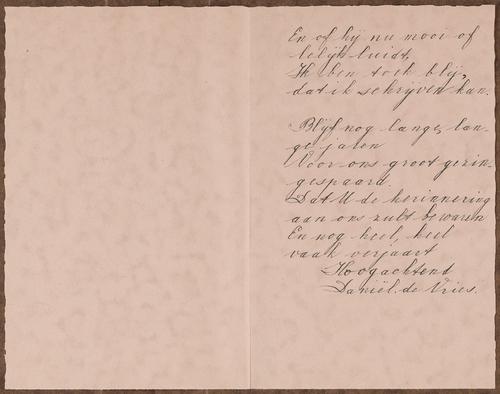 En of hij nu mooi of
lelijk luidt,
Ik ben toch blij,
dat ik schrijven kan.
Blijf nog lange, lan-
ge jaren
Voor ons groot gezin
gespaard.
Dat U de herinnering
aan ons zult bewaren
En nog heel, heel
vaak verjaart
Hoogachtend
Daniël de Vries.